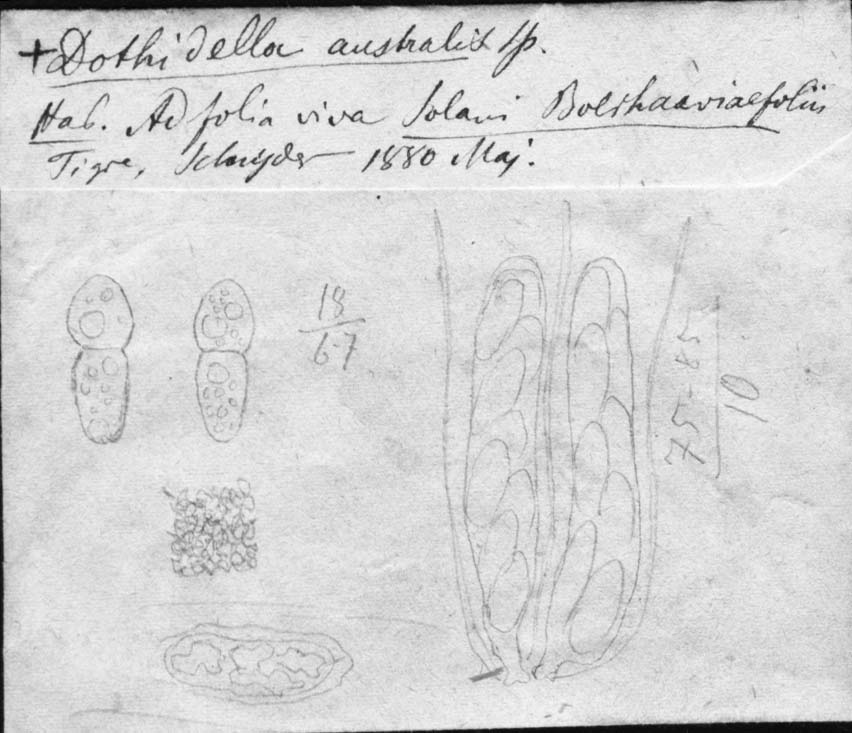 +Dothidella australis Sp.
Hab. Ad folia viva Solani Boerhaaviaefolii
Tigre, Schnyder 1880 Maj.
18
6-7
75-85
10